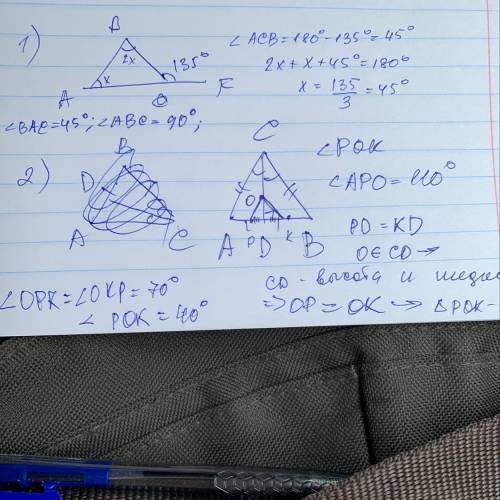 1)
B
2x
135°
x
A
C
F
∠ACB=180°-135°=45°
2x+x+45°=180°
x = 135/3 =45°
∠BAC=45°; ∠ABC=90°;
2)
B
D
A
C
C
O
A P D K B
∠POK
∠APO=110°
PD=KD
O∈CD →
CD-высота и медиа
⇒ OP=OK → ΔPOK-
∠OPK=∠OKP=70°
∠POK=40°